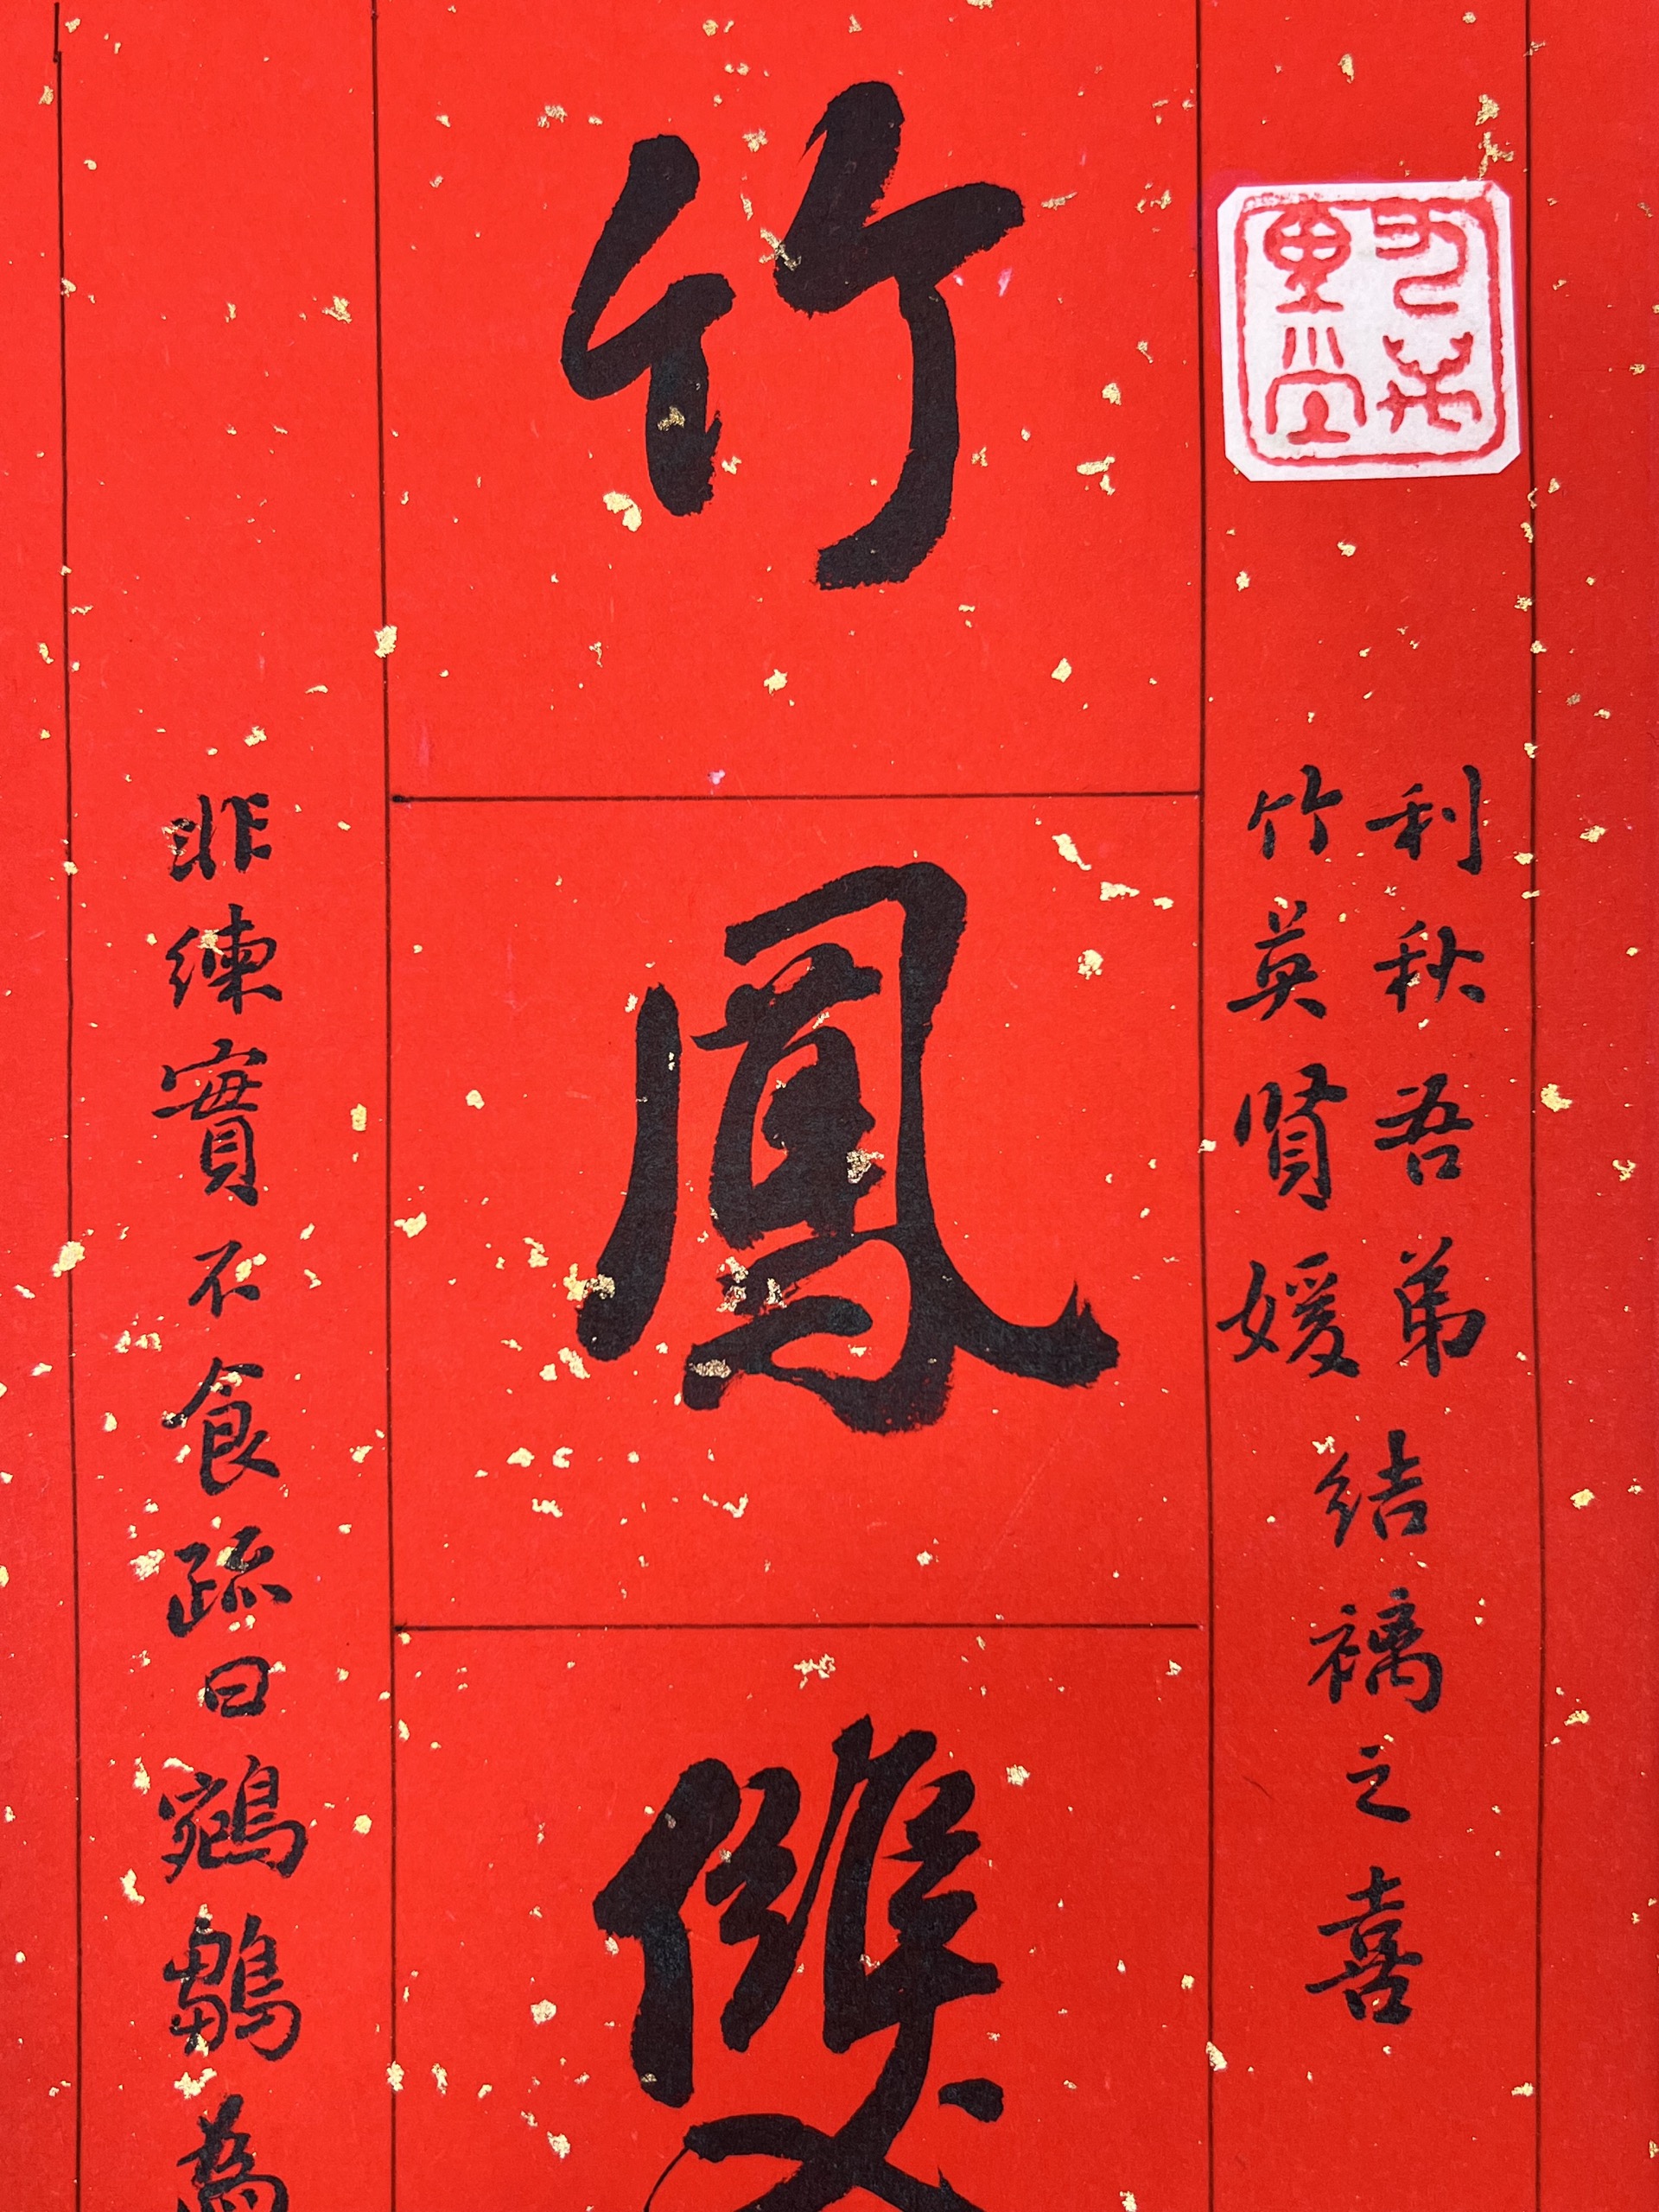 利秋吾弟
竹英賢媛
結褵之喜
竹鳳雙
非練實不食疏曰鵷鶵為